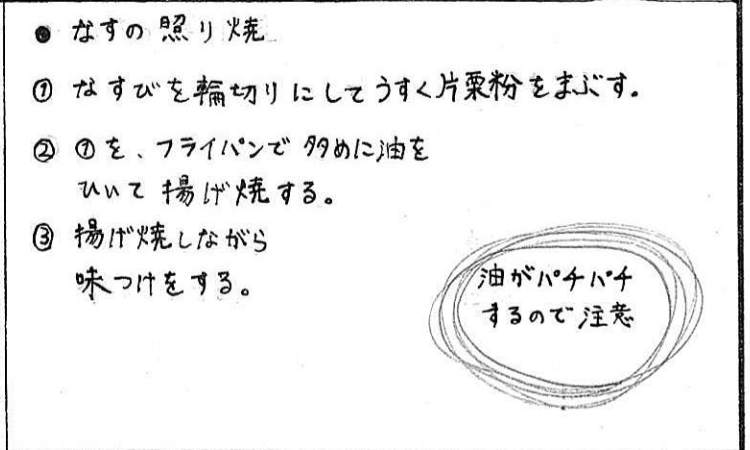 ● なすの照り焼
① なすびを輪切りにしてうすく片栗粉をまぶす。
② ①を、フライパンで多めに油を
ひいて揚げ焼する。
③ 揚げ焼しながら
味つけをする。
油がパチパチ
するので注意